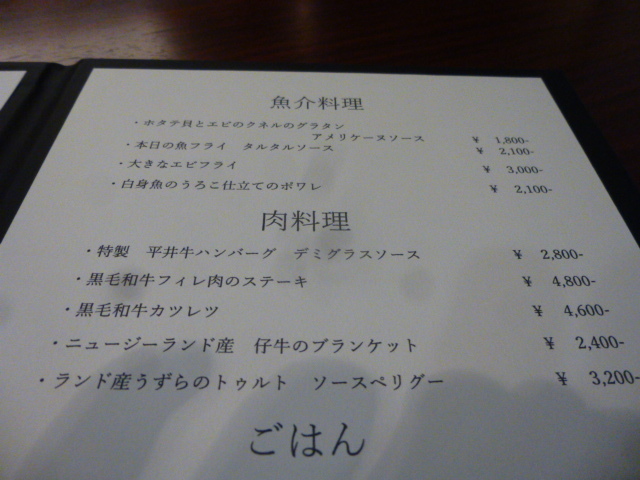 魚介料理
・ホタテ貝とエビのクネルのグラタン
アメリケーヌソース ¥ 1,800-
・本日の魚フライ タルタルソース ¥ 2,100-
・大きなエビフライ ¥ 3,000-
・白身魚のうろこ仕立てのポワレ ¥ 2,100-
肉料理
・特製 平井牛ハンバーグ デミグラスソース ¥ 2,800-
・黒毛和牛フィレ肉のステーキ ¥ 4,800-
・黒毛和牛カツレツ ¥ 4,600-
・ニュージーランド産 仔牛のブランケット ¥ 2,400-
・ランド産うずらのトゥルト ソースペリグー ¥ 3,200-
ごはん